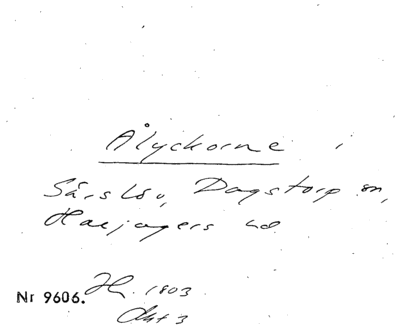 Ålyckorne i
Särslöv, Dagstorp sn,
Harjagers hd
Nr 9606. H. 1803
Akt 3